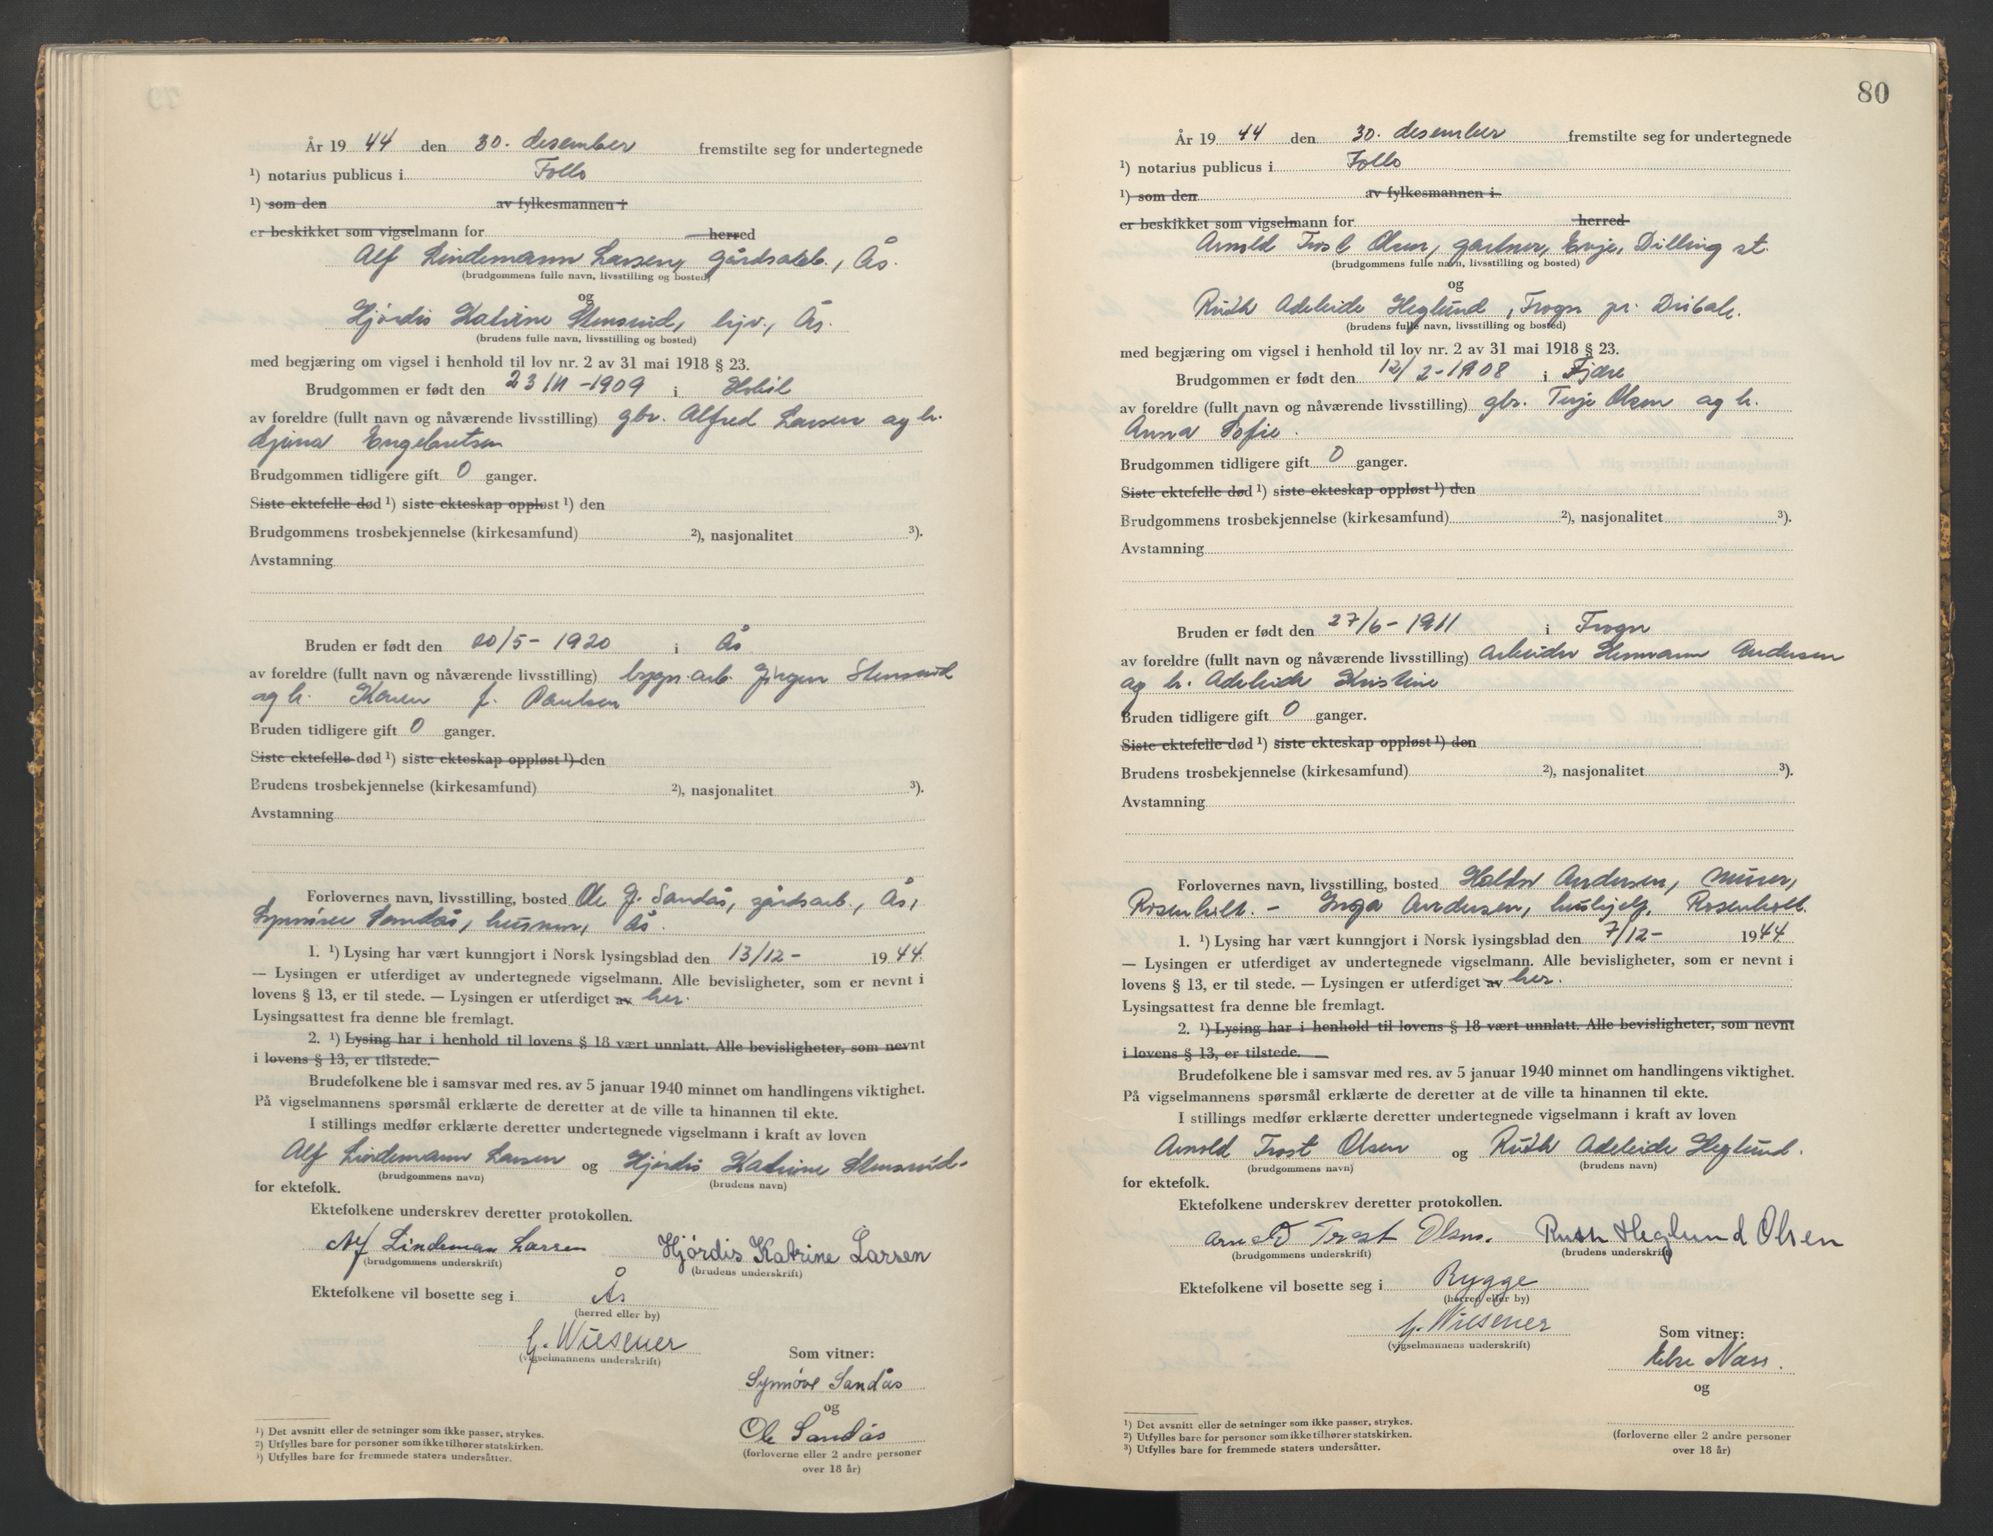 År 19 44 den 30. desember fremstilte seg for undertegnede
¹) notarius publicus i Follo
¹) som den av fylkesmannen i
er beskikket som vigselmann for herred
Alf Lindemann Larsen, gårdsarb., Ås.
(brudgommens fulle navn, livsstilling og bosted)
og
Hjørdis Katrine Stensrud, hjv., Ås.
(brudens fulle navn, livsstilling og bosted)
med begjæring om vigsel i henhold til lov nr. 2 av 31 mai 1918 § 23.
Brudgommen er født den 23/11-1909 i Hobøl
av foreldre (fullt navn og nåværende livsstilling) gbr. Alfred Larsen og h.
Engebretsen
Brudgommen tidligere gift 0 ganger.
Siste ektefelle død ¹) siste ekteskap oppløst ¹) den
Brudgommens trosbekjennelse (kirkesamfund) ²), nasjonalitet ³).
Avstamning
Bruden er født den 20/5-1920 i Ås
av foreldre (fullt navn og nåværende livsstilling) bygn.arb. Jørgen Stensrud
og h. Karen f. Paulsen
Bruden tidligere gift 0 ganger.
Siste ektefelle død ¹) siste ekteskap oppløst ¹) den
Brudens trosbekjennelse (kirkesamfund) ²), nasjonalitet ³).
Avstamning
Forlovernes navn, livsstilling, bosted Ole J. Sandås, gårdsarb., Ås,
Synnøve Sandås, husmor, Ås.
1. ¹) Lysing har vært kunngjort i Norsk lysingsblad den 13/12- 19 44
— Lysingen er utferdiget av undertegnede vigselmann. Alle bevisligheter, som er nevnt i
lovens § 13, er til stede. — Lysingen er utferdiget av her.
Lysingsattest fra denne ble fremlagt.
2. ¹) Lysing har i henhold til lovens § 18 vært unnlatt. Alle bevisligheter, som nevnt
i lovens § 13, er tilstede.
Brudefolkene ble i samsvar med res. av 5 januar 1940 minnet om handlingens viktighet.
På vigselmannens spørsmål erklærte de deretter at de ville ta hinannen til ekte.
I stillings medfør erklærte deretter undertegnede vigselmann i kraft av loven
Alf Lindemann Larsen og Hjørdis Katrine Stensrud.
(brudgommens navn) (brudens navn)
for ektefolk.
Ektefolkene underskrev deretter protokollen.
Alf Lindeman Larsen Hjørdis Katrine Larsen
(brudgommens underskrift) (brudens underskrift)
Ektefolkene vil bosette seg i Ås
(herred eller by)
G. Wiesener
(vigselmannens underskrift)
Som vitner:
Synnøve Sandås
og
Ole Sandås
(forloverne eller 2 andre personer
over 18 år)
¹) Det avsnitt eller de setninger som ikke passer, strykes.
²) Utfylles bare for personer som ikke tilhører statskirken.
³) Utfylles bare for fremmede staters undersåtter.
80
År 19 44 den 30. desember fremstilte seg for undertegnede
¹) notarius publicus i Follo
¹) som den av fylkesmannen i
er beskikket som vigselmann for herred
Arnold Trost Olsen, gartner, Evje, Dilling st.
(brudgommens fulle navn, livsstilling og bosted)
og
Ruth Adeleide Heglund, Frogn pr. Drøbak.
(brudens fulle navn, livsstilling og bosted)
med begjæring om vigsel i henhold til lov nr. 2 av 31 mai 1918 § 23.
Brudgommen er født den 12/2-1908 i Fjære
av foreldre (fullt navn og nåværende livsstilling) gbr. Terje Olsen og h.
Anna Sofie.
Brudgommen tidligere gift 0 ganger.
Siste ektefelle død ¹) siste ekteskap oppløst ¹) den
Brudgommens trosbekjennelse (kirkesamfund) ²), nasjonalitet ³).
Avstamning
Bruden er født den 27/6-1911 i Frogn
av foreldre (fullt navn og nåværende livsstilling) Arbeider Hermann Andersen
og h. Adeleide Kristine
Bruden tidligere gift 0 ganger.
Siste ektefelle død ¹) siste ekteskap oppløst ¹) den
Brudens trosbekjennelse (kirkesamfund) ²), nasjonalitet ³).
Avstamning
Forlovernes navn, livsstilling, bosted Haldor Andersen, murer,
Rosenholt. - Inga Andersen, hushjelp, Rosenholt.
1. ¹) Lysing har vært kunngjort i Norsk lysingsblad den 7/12- 1944
— Lysingen er utferdiget av undertegnede vigselmann. Alle bevisligheter, som er nevnt i
lovens § 13, er til stede. — Lysingen er utferdiget av her.
Lysingsattest fra denne ble fremlagt.
2. ¹) Lysing har i henhold til lovens § 18 vært unnlatt. Alle bevisligheter, som nevnt
i lovens § 13, er tilstede.
Brudefolkene ble i samsvar med res. av 5 januar 1940 minnet om handlingens viktighet.
På vigselmannens spørsmål erklærte de deretter at de ville ta hinannen til ekte.
I stillings medfør erklærte deretter undertegnede vigselmann i kraft av loven
Arnold Trost Olsen og Ruth Adeleide Heglund.
(brudgommens navn) (brudens navn)
for ektefolk.
Ektefolkene underskrev deretter protokollen.
Arnold Trost Olsen. Ruth Heglund Olsen
(brudgommens underskrift) (brudens underskrift)
Ektefolkene vil bosette seg i Rygge
(herred eller by)
G. Wiesener
(vigselmannens underskrift)
Som vitner:
Else Næss.
og
(forloverne eller 2 andre personer
over 18 år)
¹) Det avsnitt eller de setninger som ikke passer, strykes.
²) Utfylles bare for personer som ikke tilhører statskirken.
³) Utfylles bare for fremmede staters undersåtter.